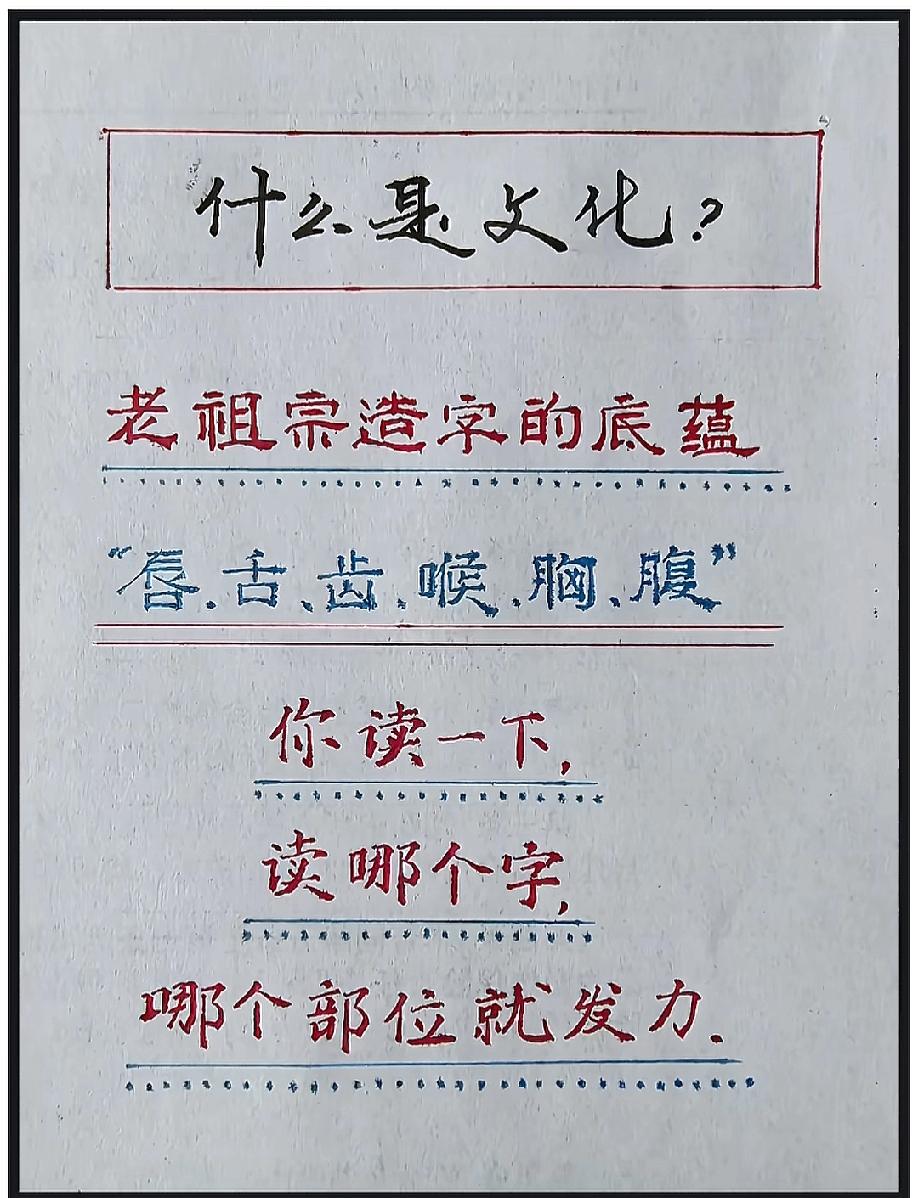 什么是文化?
老祖宗造字的底蕴
“唇、舌、齿、喉、胸、腹”
你读一下,
读哪个字,
哪个部位就发力.